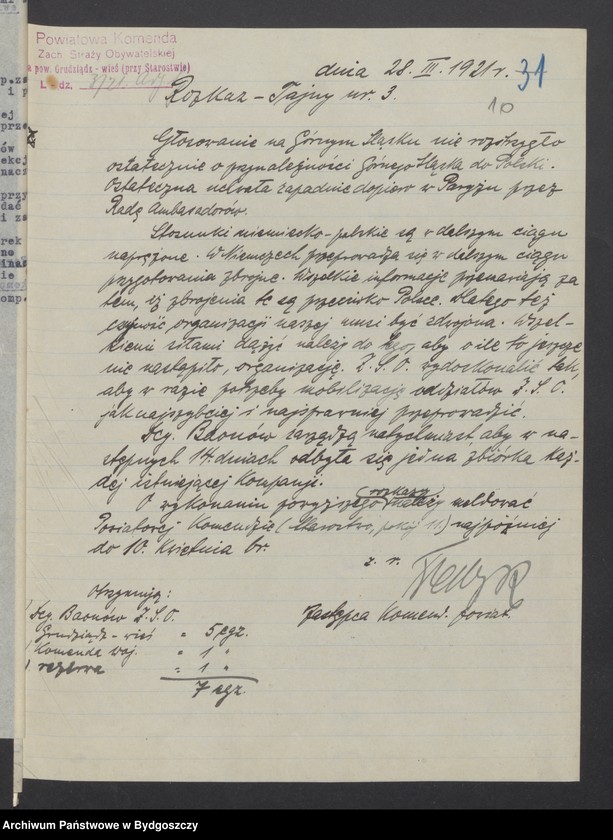 Powiatowa Komenda
Zach. Straży Obywatelskiej
pow. Grudziądz-wieś (przy Starostwie)
L. dz.
dnia 28. III. 1921 r.
31
10
Rozkaz – Tajny nr. 3.
Głosowanie na Górnym Śląsku nie rozstrzygło
ostatecznie o przynależności Górnego Śląska do Polski.
Ostateczna uchwała zapadnie dopiero w Paryżu przez
Radę Ambasadorów.
Stosunki niemiecko-polskie są w dalszym ciągu
naprężone. W Niemczech przeprowadza się w dalszym ciągu
przygotowania zbrojne. Wszelkie informacje przemawiają za
tem, iż zbrojenia te są przeciwko Polsce. Dlatego też
czujność organizacji naszej musi być zdwojona. Wszel-
kiemi siłami dążyć należy do tego, aby o ile to jeszcze
nie nastąpiło, organizację Z.S.O. wydoskonalić tak,
aby w razie potrzeby mobilizację oddziałów Z.S.O.
jak najszybciej i najsprawniej przeprowadzić.
Dcy. Baonów zarządzą natychmiast, aby w na-
stępnych 14 dniach odbyła się jedna zbiórka każ-
dej istniejącej kompanji.
O wykonaniu powyższego rozkazu należy meldować
Powiatowej Komendzie (Starostwo, pokój 11.) najpóźniej
do 10. kwietnia br.
z. r.
Zastępca Komend. powiat.
Otrzymują:
Dcy. Baonów Z.S.O.
Grudziądz-wieś " 5 egz.
Komenda woj. " 1 "
rezerwa " 1 "
7 egz.
Archiwum Państwowe w Bydgoszczy